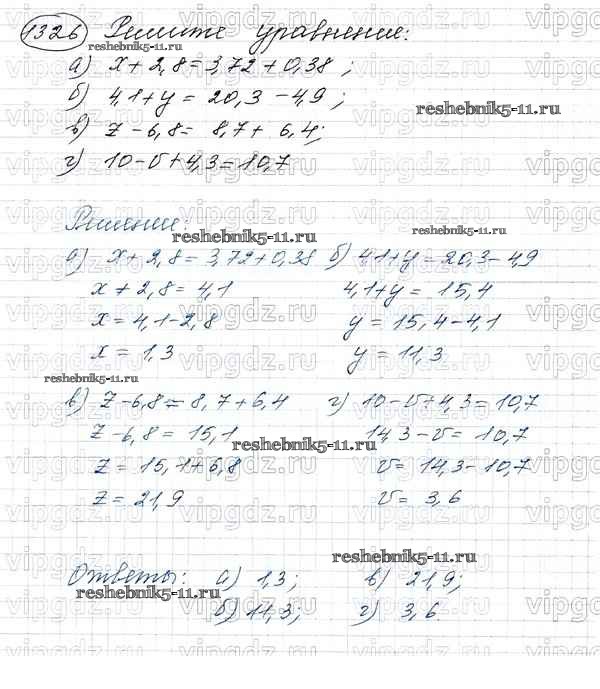 1326 Решите уравнение:
а) x + 2,8 = 3,72 + 0,38 ;
б) 4,1 + y = 20,3 - 4,9 ;
в) z - 6,8 = 8,7 + 6,4;
г) 10 - v + 4,3 = 10,7
Решение:
а) x + 2,8 = 3,72 + 0,38 б) 4,1 + y = 20,3 - 4,9
x + 2,8 = 4,1 4,1 + y = 15,4
x = 4,1 - 2,8 y = 15,4 - 4,1
x = 1,3 y = 11,3
в) z - 6,8 = 8,7 + 6,4 г) 10 - v + 4,3 = 10,7
z - 6,8 = 15,1 14,3 - v = 10,7
z = 15,1 + 6,8 v = 14,3 - 10,7
z = 21,9 v = 3,6
Ответы: а) 1,3; в) 21,9;
б) 11,3; г) 3,6.
reshebnik5-11.ru
vipgdz.ru